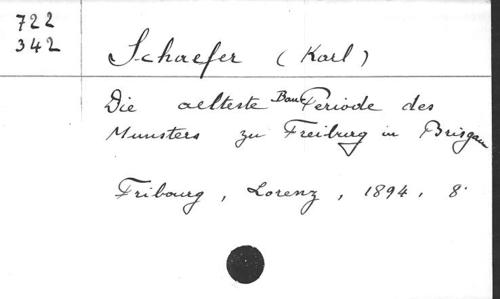 722
342
Schaefer (Karl)
Die aelteste Bau-Periode des
Munsters zu Freiburg in Brisgau
Fribourg, Lorenz, 1894, 8°